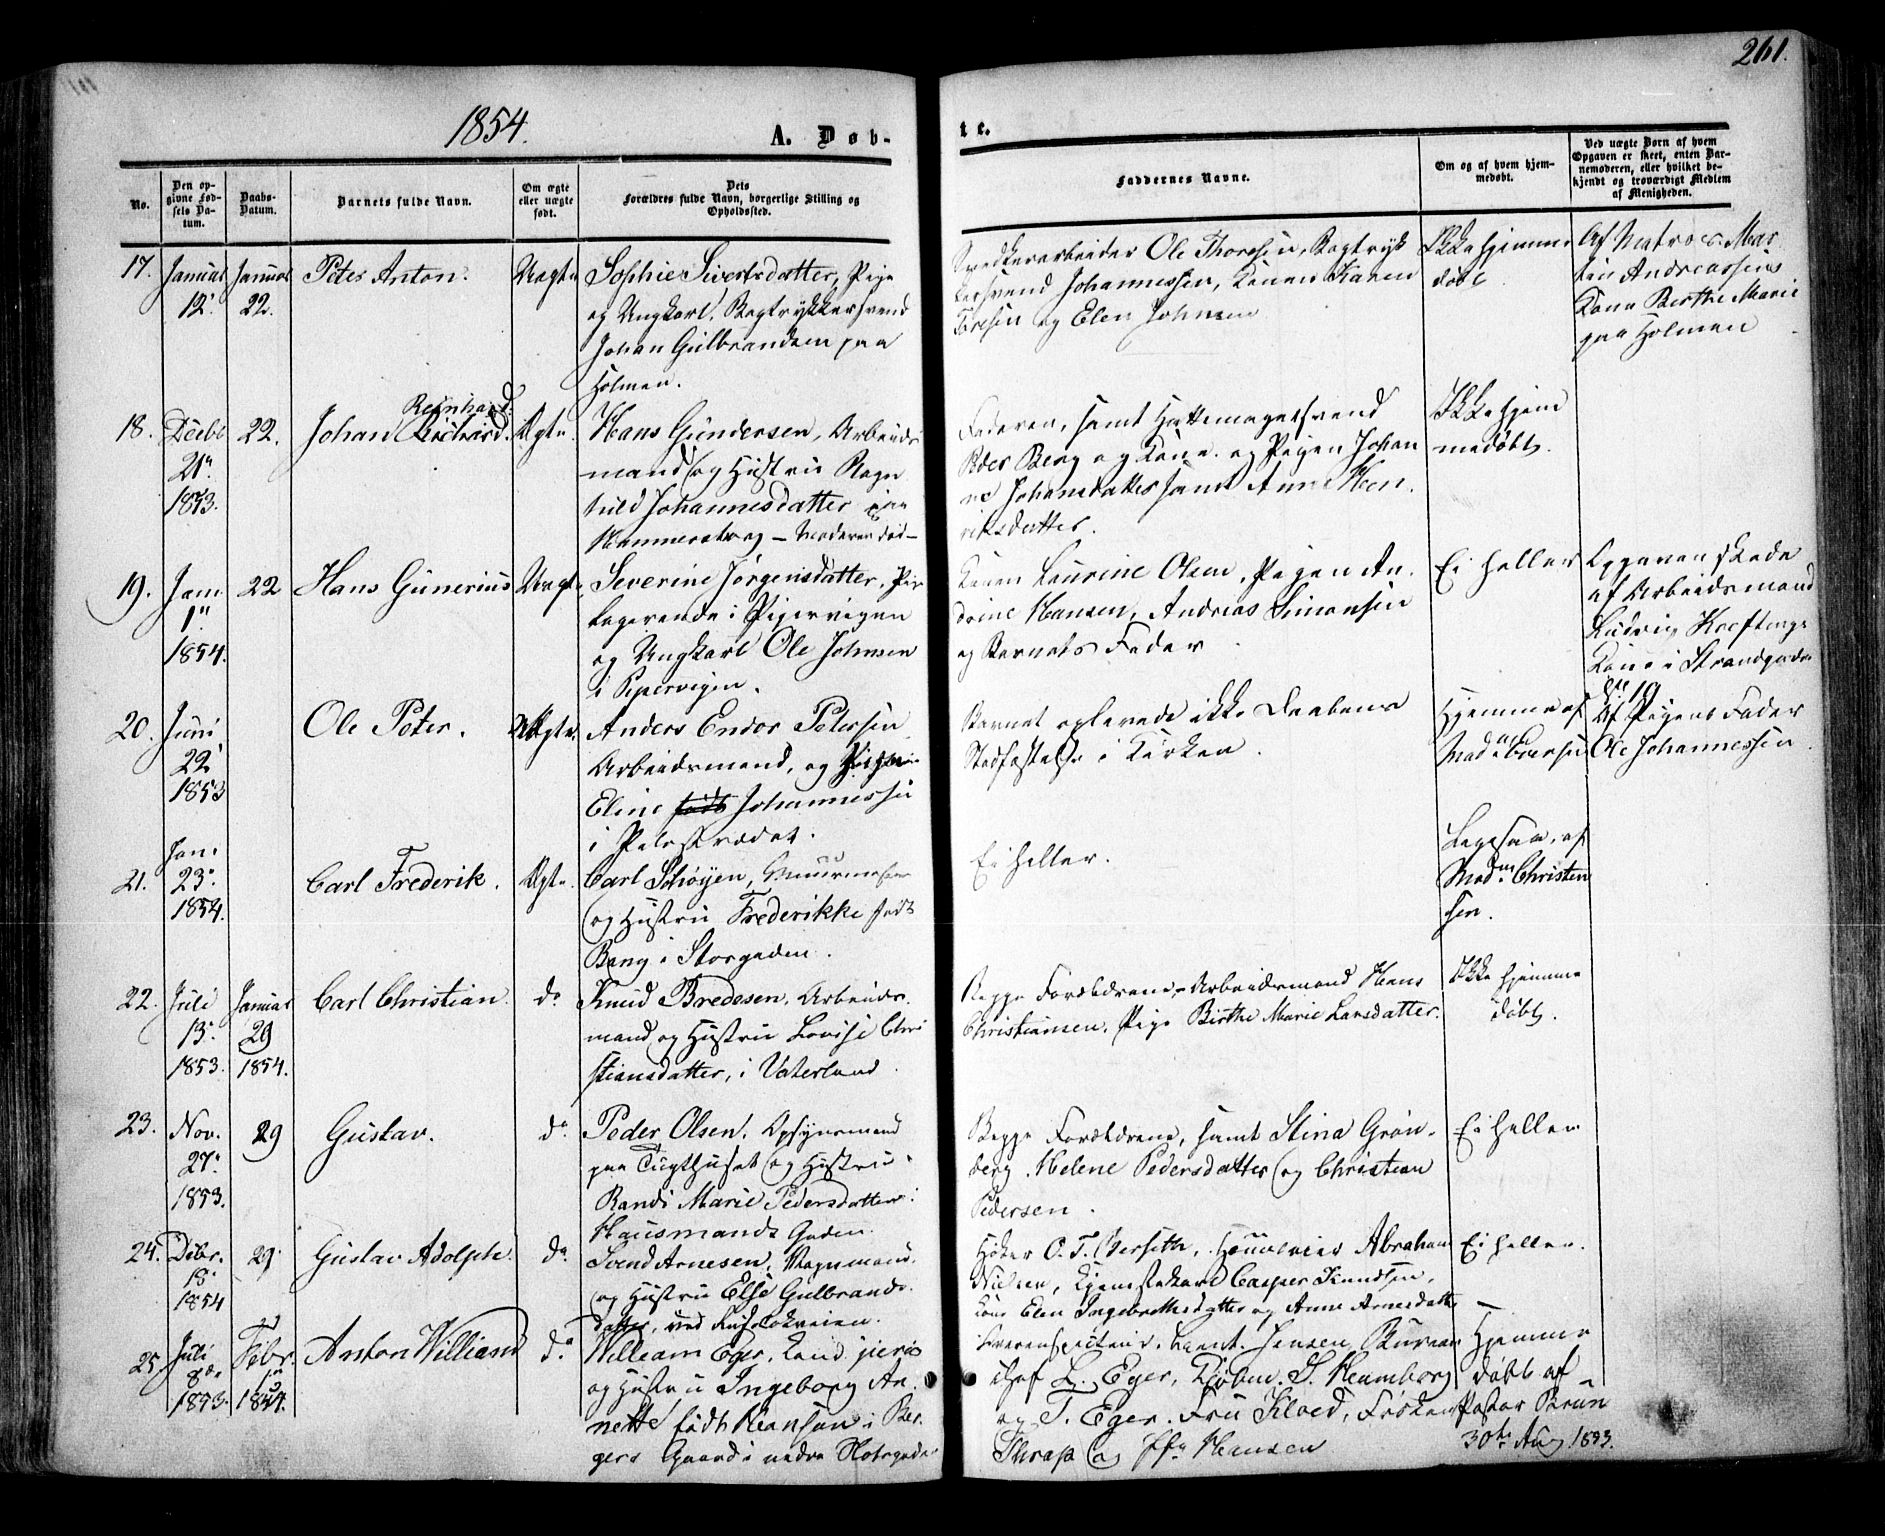 261.
1854.
A. Døb-
te.
No.
Den op-
givne Fød-
sels Da-
tum.
Daabs-
Datum.
Barnets fulde Navn.
Om ægte
eller uægte
født.
Dets
Forældres fulde Navn, borgerlige Stilling og
Opholdssted.
Faddernes Navne.
Om og af hvem hjem-
medøbt.
Ved uægte Børn af hvem
Opgaven er skeet, enten Bar-
nemoderen, eller hvilket be-
kjendt og troværdigt Medlem
af Menigheden.
17.
Januar
12.
Januar
22.
Peter Anton.
Uægte
Sophie Sivertsdatter, Pige
og Ungkarl, Bogtrykkersvend
Johan Gulbrandsen paa
Holmen.
Ole Thoresen, Bogtryk
kersvend Johannessen, Konen Karen
Toresen og Elen Johnsen
Ikke hjemme
døbt
Af Matros Mar
tin Andreassens
Kone Berthe Marie
paa Holmen
18.
Decbr
21.
1853.
22.
Reinhard.
Johan Richard.
Ægte.
Hans Gundersen, Arbeids
mand og Hustru Ragn
hild Johannesdatter paa
Hammersborg – Moderen død –
Faderen, samt Hattemagersvend
Peder Berg og Kone og Pigen Johan
ne Johansdatter samt Anne Hen
riksdatter.
Ikke hjem
medøbt.
19.
Janr
1.
1854.
22
Hans Gunerius
Uægte
Severine Jørgensdatter, Pige
logerende i Pipervigen
og Ungkarl Ole Johnsen
i Pipervigen.
Konen Laurine Olsen, Pigen An
drine Hansen, Andreas Simonsen
og Barnets Fader
Ei heller
Opgaven skede
af Arbeidsmand
Ludvig
Kone i Strandgaden
No. 19
20.
Juni
22
1853
Ole Peter.
Anders Endor Petersen
Arbeidsmand, og Pigen
Eline født Johannessen
i Pilestrædet.
Barnet oplevede ikke Daabens
Stadfæstelse i Kirken.
Hjemme af
Af Pigens Fader
Ole Johannessen
21.
Jan.
23.
1854.
Carl Frederik.
Ægte.
Carl Schøyen, Muurmester
og Hustru Frederikke født
Bang i Storgaden.
Ei heller.
Ligesaa, af
Madme Christen
sen.
22.
Juli
13.
1853.
Januar
29
1854.
Carl Christian.
do
Knud Bredesen, Arbeids
mand og Hustru Lovise Chri
stiansdatter, i Vaterland.
Begge Forældrene, Arbeidsmand Hans
Christiansen, Pige Birthe Marie Larsdatter.
Ikke hjemme
døbt.
23.
Nov.
27.
1853.
29
Gustav.
do
Peder Olsen, Opsynsmand
paa Tugthuset og Hustru
Randi Marie Pedersdatter i
Hausmands Gaden.
Begge Forældrene, samt Stina Grøn-
berg, Helene Pedersdatter og Christian
Pedersen.
Ei heller
24.
Decbr.
18.
1854
29.
Gustav Adolph.
do
Svend Arnesen, Vognmand,
og Hustru Else Gulbrands
datter, ved
Høker O. T. Abraham
Nielsen, Casper Knudsen,
Kone Elen Ingebrethsdatter og Anne Arnesdatter
Ei heller.
25.
Juli
8de
1853.
Febr.
1854.
Anton William
do
William Eger, Cand. juris
og Hustru Ingeborg An
nette født Hansen i Ber
gers Gaard i nedre Slotsgade
Jensen, Bureau
chef L. Eger, S. Hamborg
og T. Eger. Fru Kloed, Frøken
Thrap og Hansen
Hjemme
døbt af
Pastor Brun
30te Aug. 1853.